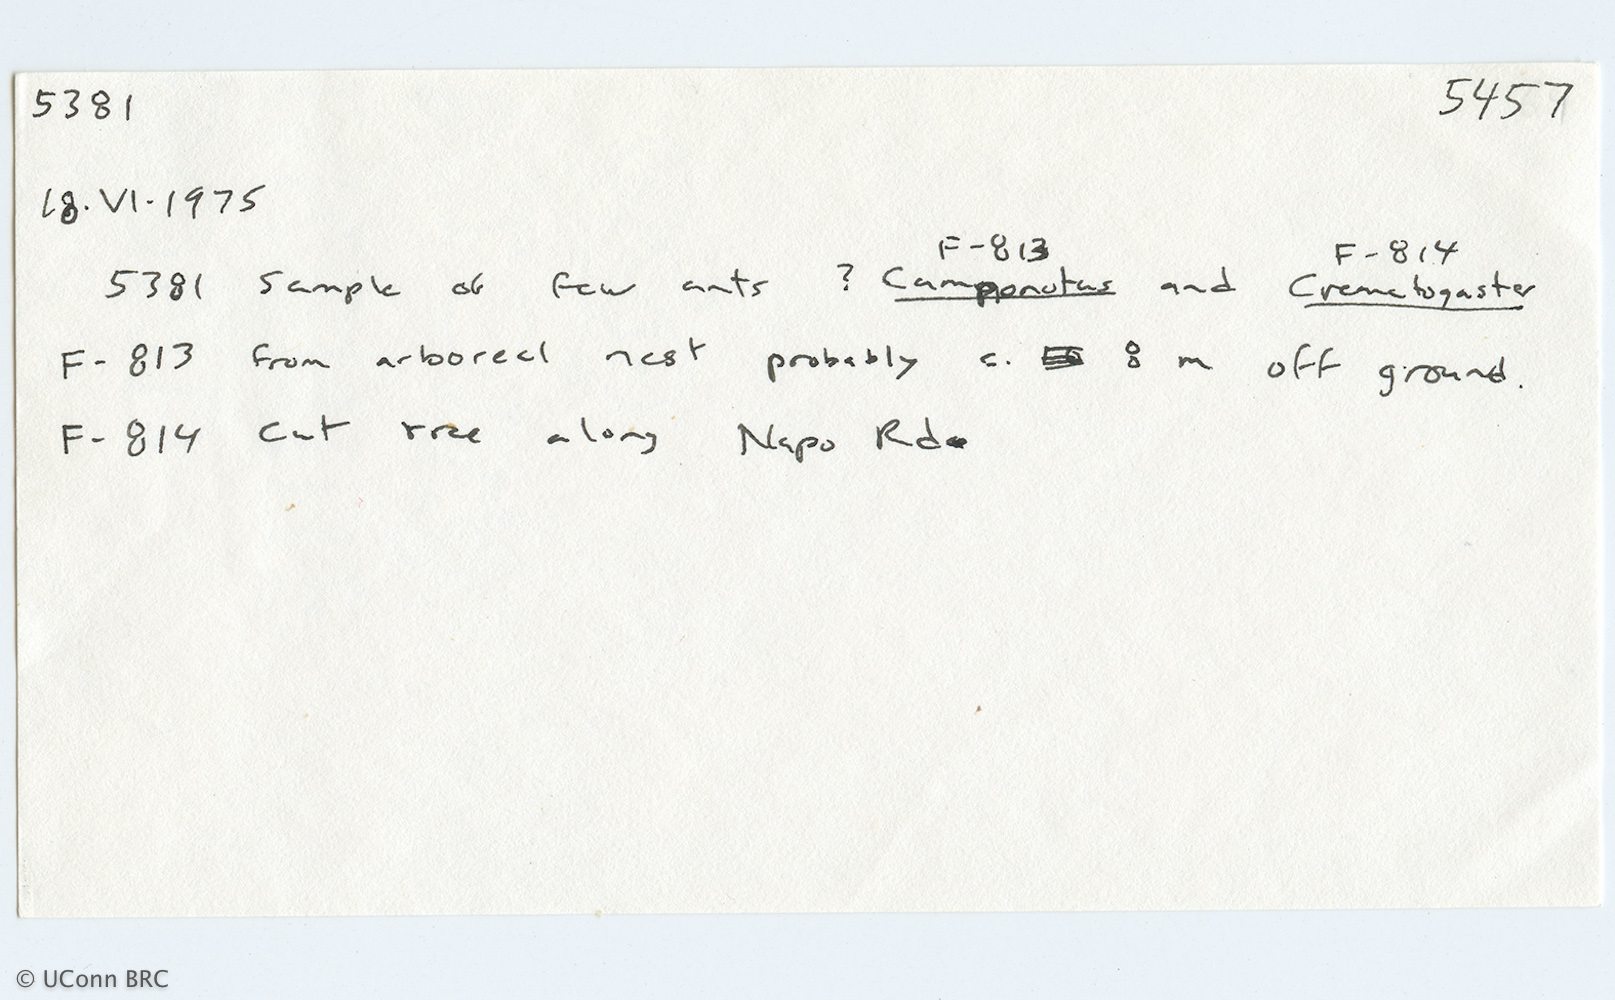 5381 5457
18.VI.1975
F-813 F-814
5381 Sample of few ants ? Camponotus and Crematogaster
F-813 from arboreal nest probably c. 8 m off ground.
F-814 Cut tree along Napo Rd.
© UConn BRC